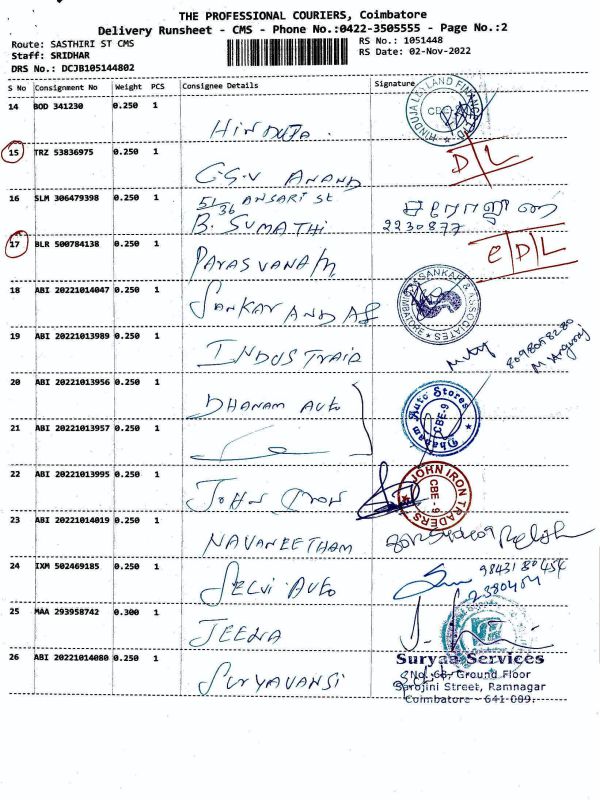 THE PROFESSIONAL COURIERS, Coimbatore
Delivery Runsheet - CMS - Phone No.:0422-3505555 - Page No.:2
Route: SASTHIRI ST CMS
RS No.: 1051448
Staff: SRIDHAR
RS Date: 02-Nov-2022
DRS No.: DCJB105144802
S No Consignment No Weight PCS Consignee Details Signature
14 BOD 341230 0.250 1 HINDUJA
15 TRZ 53836975 0.250 1 C.S.V ANAND D/L
16 SLM 306479398 0.250 1 51/36 ANSARI St
B. SUMATHI 2230877
17 BLR 500784138 0.250 1 PARASVANATH e/D/L
18 ABI 20221014047 0.250 1 SANKAR AND AS
SANKAR & ASSOCIATES
19 ABI 20221013989 0.250 1 INDUSTRAIA 8098098280
20 ABI 20221013956 0.250 1 DHANAM AUTO
Dhanam Auto Stores
CBE-9
21 ABI 20221013957 0.250 1
22 ABI 20221013995 0.250 1 JOHN IRON
JOHN IRON TRADERS
CBE-9
23 ABI 20221014019 0.250 1 NAVANEETHAM
24 IXM 502469185 0.250 1 SELVI AUTO 9843180454
2380454
25 MAA 293958742 0.300 1 JEENA
26 ABI 20221014080 0.250 1 SURYAVANSI
Suryaa Services
No. 68, Ground Floor
Sarojini Street, Ramnagar
Coimbatore - 641 009.